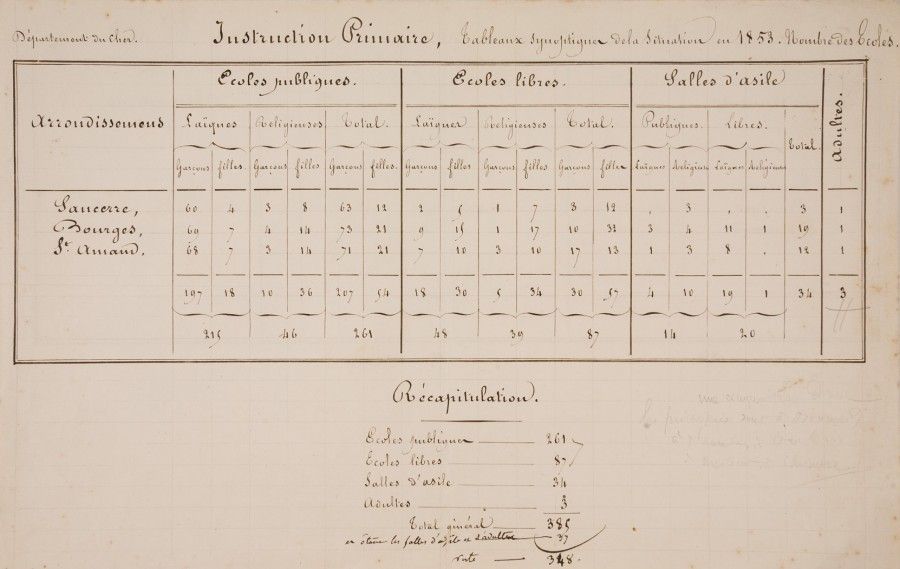 Département du Cher. Instruction Primaire, Tableaux synoptiques de la Situation en 1853. Nombre des Ecoles.
Ecoles publiques. Ecoles libres. Salles d'asile Adultes.
Arrondissemens Laïques Religieuses Total. Laïques Religieuses Total. Publiques. Libres. Total.
Garçons filles. Garçons filles Garçons filles. Garçons filles Garçons filles Garçons filles Laïques Religieuses Laïques Religieuses
Sancerre, 60 4 3 8 63 12 2 5 1 7 3 12 . 3 . . 3 1
Bourges, 69 7 4 14 73 21 9 15 1 17 10 32 3 4 11 1 19 1
St. Amand. 68 7 3 14 71 21 7 10 3 10 17 13 1 3 8 . 12 1
197 18 10 36 207 54 18 30 5 34 30 57 4 10 19 1 34 3
215 46 261 48 39 87 14 20
Récapitulation.
Ecoles publiques 261
Ecoles libres 87
Salles d'asile 34
Adultes 3
Total général 385
en ôtant les salles d'asile et d'adultes 37
reste 348.